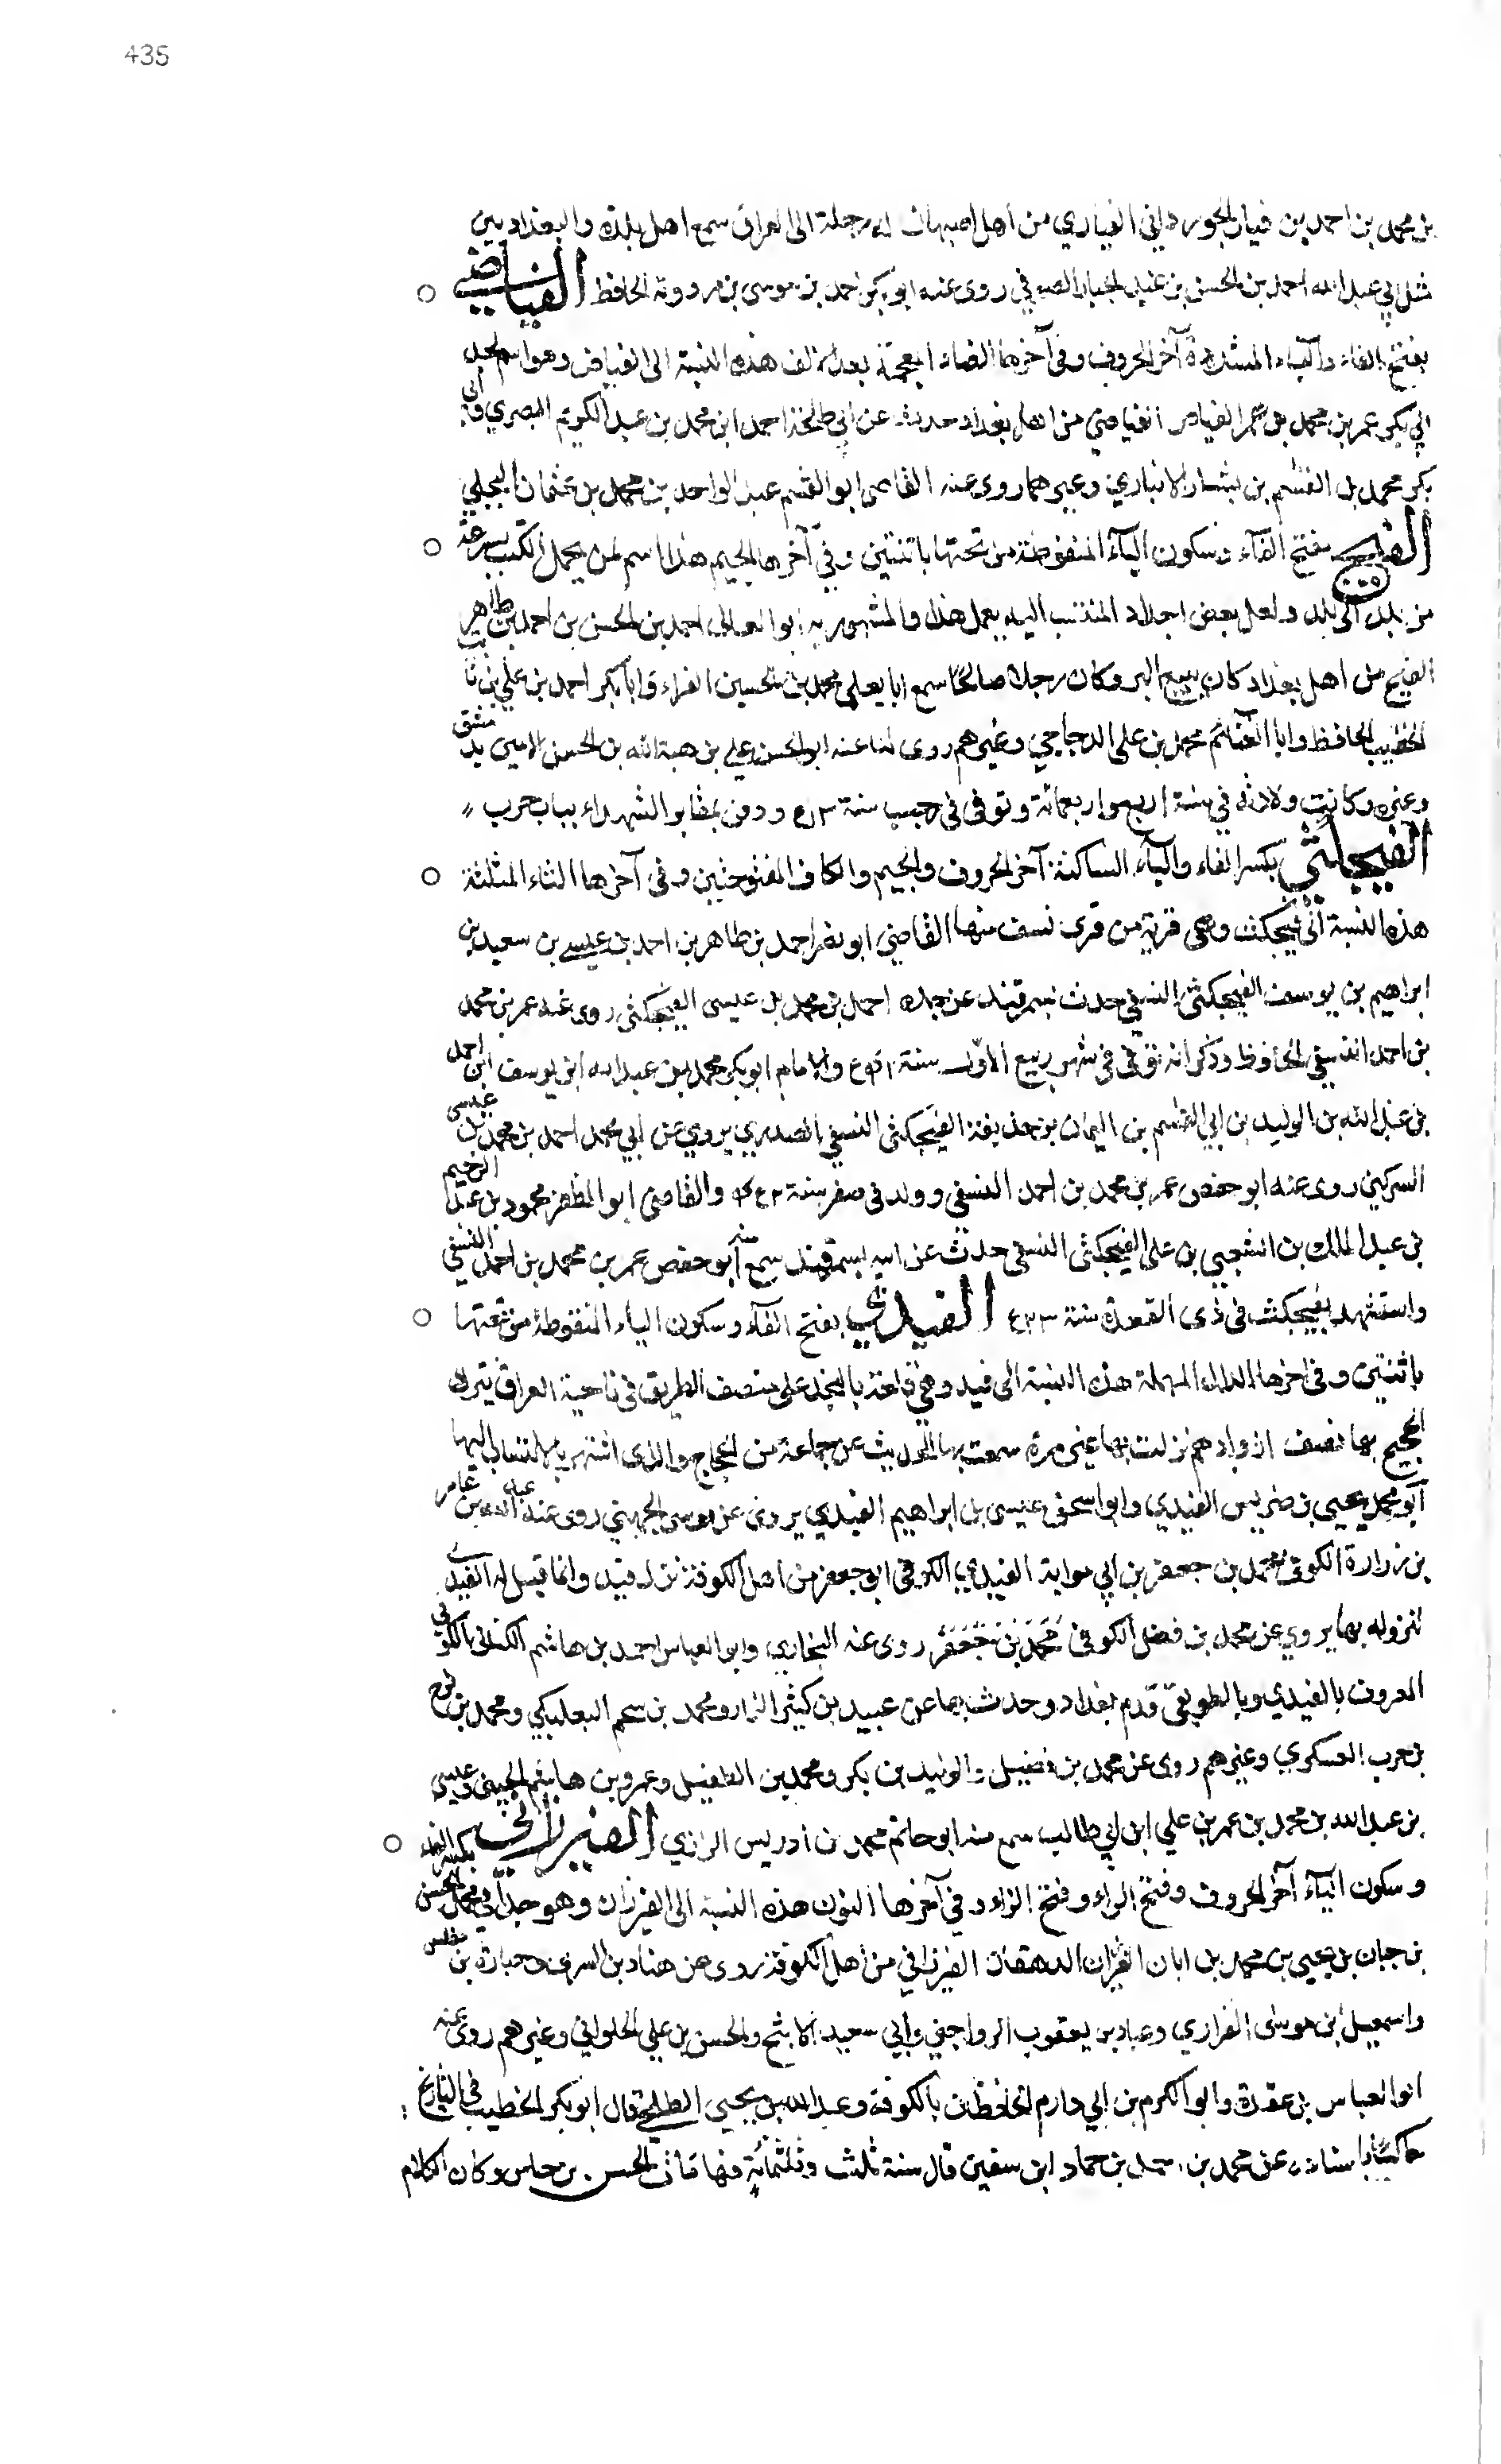 435
بن محمد بن احمد بن فيار الجوزداني الفياري من اهل اصبهان له رحلة الى العراق سمع اهل بلده والبغداديين
مثل ابي عبد الله احمد بن الحسن بن عبد الجبار الصوفي روى عنه ابو بكر احمد بن موسى بن مردويه الحافظ الفياضي
بفتح الفاء والياء المشددة آخر الحروف وفي آخرها الضاد المعجمة بعد الالف هذه النسبة الى الفياض وهو اسم لجد
ابي بكر عمر بن محمد بن عمر الفياض الفياضي من اهل بغداد حدث عن ابي طلحة احمد ابن محمد بن عبد الكريم البصري وابي
بكر محمد بن القسم بن بشار الانباري وغيرهما روى عنه القاضي ابو القسم عبد الواحد بن محمد بن عثمان البجلي
الفيج بفتح الفآء وسكون اليآء المنقوطة من تحتها باثنتين وفي آخرها الجيم هذا اسم لمن يحمل الكتب بسرعة
من بلد الى بلد ولعل بعض اجداد المنتسب اليه يعمل هذا والمشهور به ابو المعالي احمد بن الحسن بن احمد بن طاهر
الفيج من اهل بغداد كان يبيع البر وكان رجلا صالحا سمع ابا يعلى محمد بن الحسين الفراء وابا بكر احمد بن علي بن ثابت
الخطيب الحافظ وابا الغنائم محمد بن علي الدجاجي وغيرهم روى لنا عنه ابو الحسن علي بن هبة الله بن الحسن الامين بدمشق
وغيره وكانت ولادته في سنة اربع واربعمائة وتوفي في رجب سنة ودفن بمقابر الشهداء بباب حرب
الفيجكثي بكسر الفاء والياء الساكنة آخر الحروف والجيم والكاف المفتوحتين وفي آخرها الثاء المثلثة
هذه النسبة الى فيجكث وهي قرية من قرى نسف منها القاضي ابو نصر احمد بن طاهر بن احمد بن عيسى بن سعيد بن
ابراهيم بن يوسف الفيجكثي النسفي حدث بسمرقند عن جده احمد بن محمد بن عيسى الفيجكثي روى عنه عمر بن محمد
بن احمد النسفي الحافظ وذكر انه توفي في شهر ربيع الاول سنة والامام ابو بكر محمد بن عبد الله ابن يوسف ابن احمد
بن عبد الله بن الوليد بن ابي القسم بن اليمان بن حذيفة الفيجكثي النسفي الصديري يروي عن ابي محمد احمد بن محمد بن عيسى
السركثي روى عنه ابو حفص عمر بن محمد بن احمد النسفي وولد في صفر سنة والقاضي ابو المظفر محمود بن عبد الرحيم
بن عبد الملك بن الشعيبي بن علي الفيجكثي النسفي حدث عن ابيه بسمرقند سمع منه ابو حفص عمر بن محمد بن احمد النسفي
واستشهد بفيجكث في ذي القعدة سنة الفيدي بفتح الفآء وسكون الياء المنقوطة من تحتها
باثنتين وفي اخرها الدال المهملة هذه النسبة الى فيد وهي قلعة بالنجد على منتصف الطريق في ناحية العراق يترك
الحجيج بها نصف ازوادهم نزلت بها غير مرة سمعت بها الحديث عن جماعة من الحجاج والذي اشتهر بالانتساب اليها
ابو محمد يحيى بن ضريس الفيدي وابو اسحق عيسى بن ابراهيم الفيدي يروي عن موسى الجهني روى عنه عبد الله بن عامر
بن زرارة الكوفي ومحمد بن جعفر بن ابي مواتية الفيدي الكوفي ابو جعفر من اهل الكوفة نزل فيد وانما قيل له الفيدي
لنزوله بها يروي عن محمد بن فضل الكوفي محمد بن جعفر روى عنه البخاري وابو العباس احمد بن هاشم الكناني الكوفي
المعروف بالفيدي وبالطريقي قدم بغداد وحدث بها عن عبيد بن كثير التمار ومحمد بن البعلبكي ومحمد بن
بن حرب العسكري وغيرهم روى عن محمد بن فضيل والوليد بن بكر ومحمد بن الطفيل وعمرو بن هاشم الجنبي وعيسى
بن عبد الله بن محمد بن عمر بن علي ابن ابي طالب سمع منه ابو حاتم محمد بن ادريس الرازي الفيرزاني بكسر الفاء
وسكون اليآء آخر الحروف وفتح الراء وفتح الزاء وفي آخرها النون هذه النسبة الى الفيرزان وهو جد ابي محمد الحسن
بن حبان بن يحيى بن محمد بن ابان الدهقان الفيرزاني من اهل الكوفة روى عن هناد بن السري وجبارة بن مغلس
واسمعيل ابن موسى الفزاري وعباد بن يعقوب الرواجني وابي سعيد الاشج والحسن بن علي الحلواني وغيرهم روى عنه
ابو العباس بن عقدة وابو الكرم بن ابي دارم الحافظان بالكوفة وعبد الله بن يحيى الطلحي قال ابو بكر الخطيب في التاريخ
حاكيا باسناده عن محمد بن احمد بن حماد ابن سفين قال سنة ثلث وثلثمائة فيها مات الحسن بن وكان الكلام